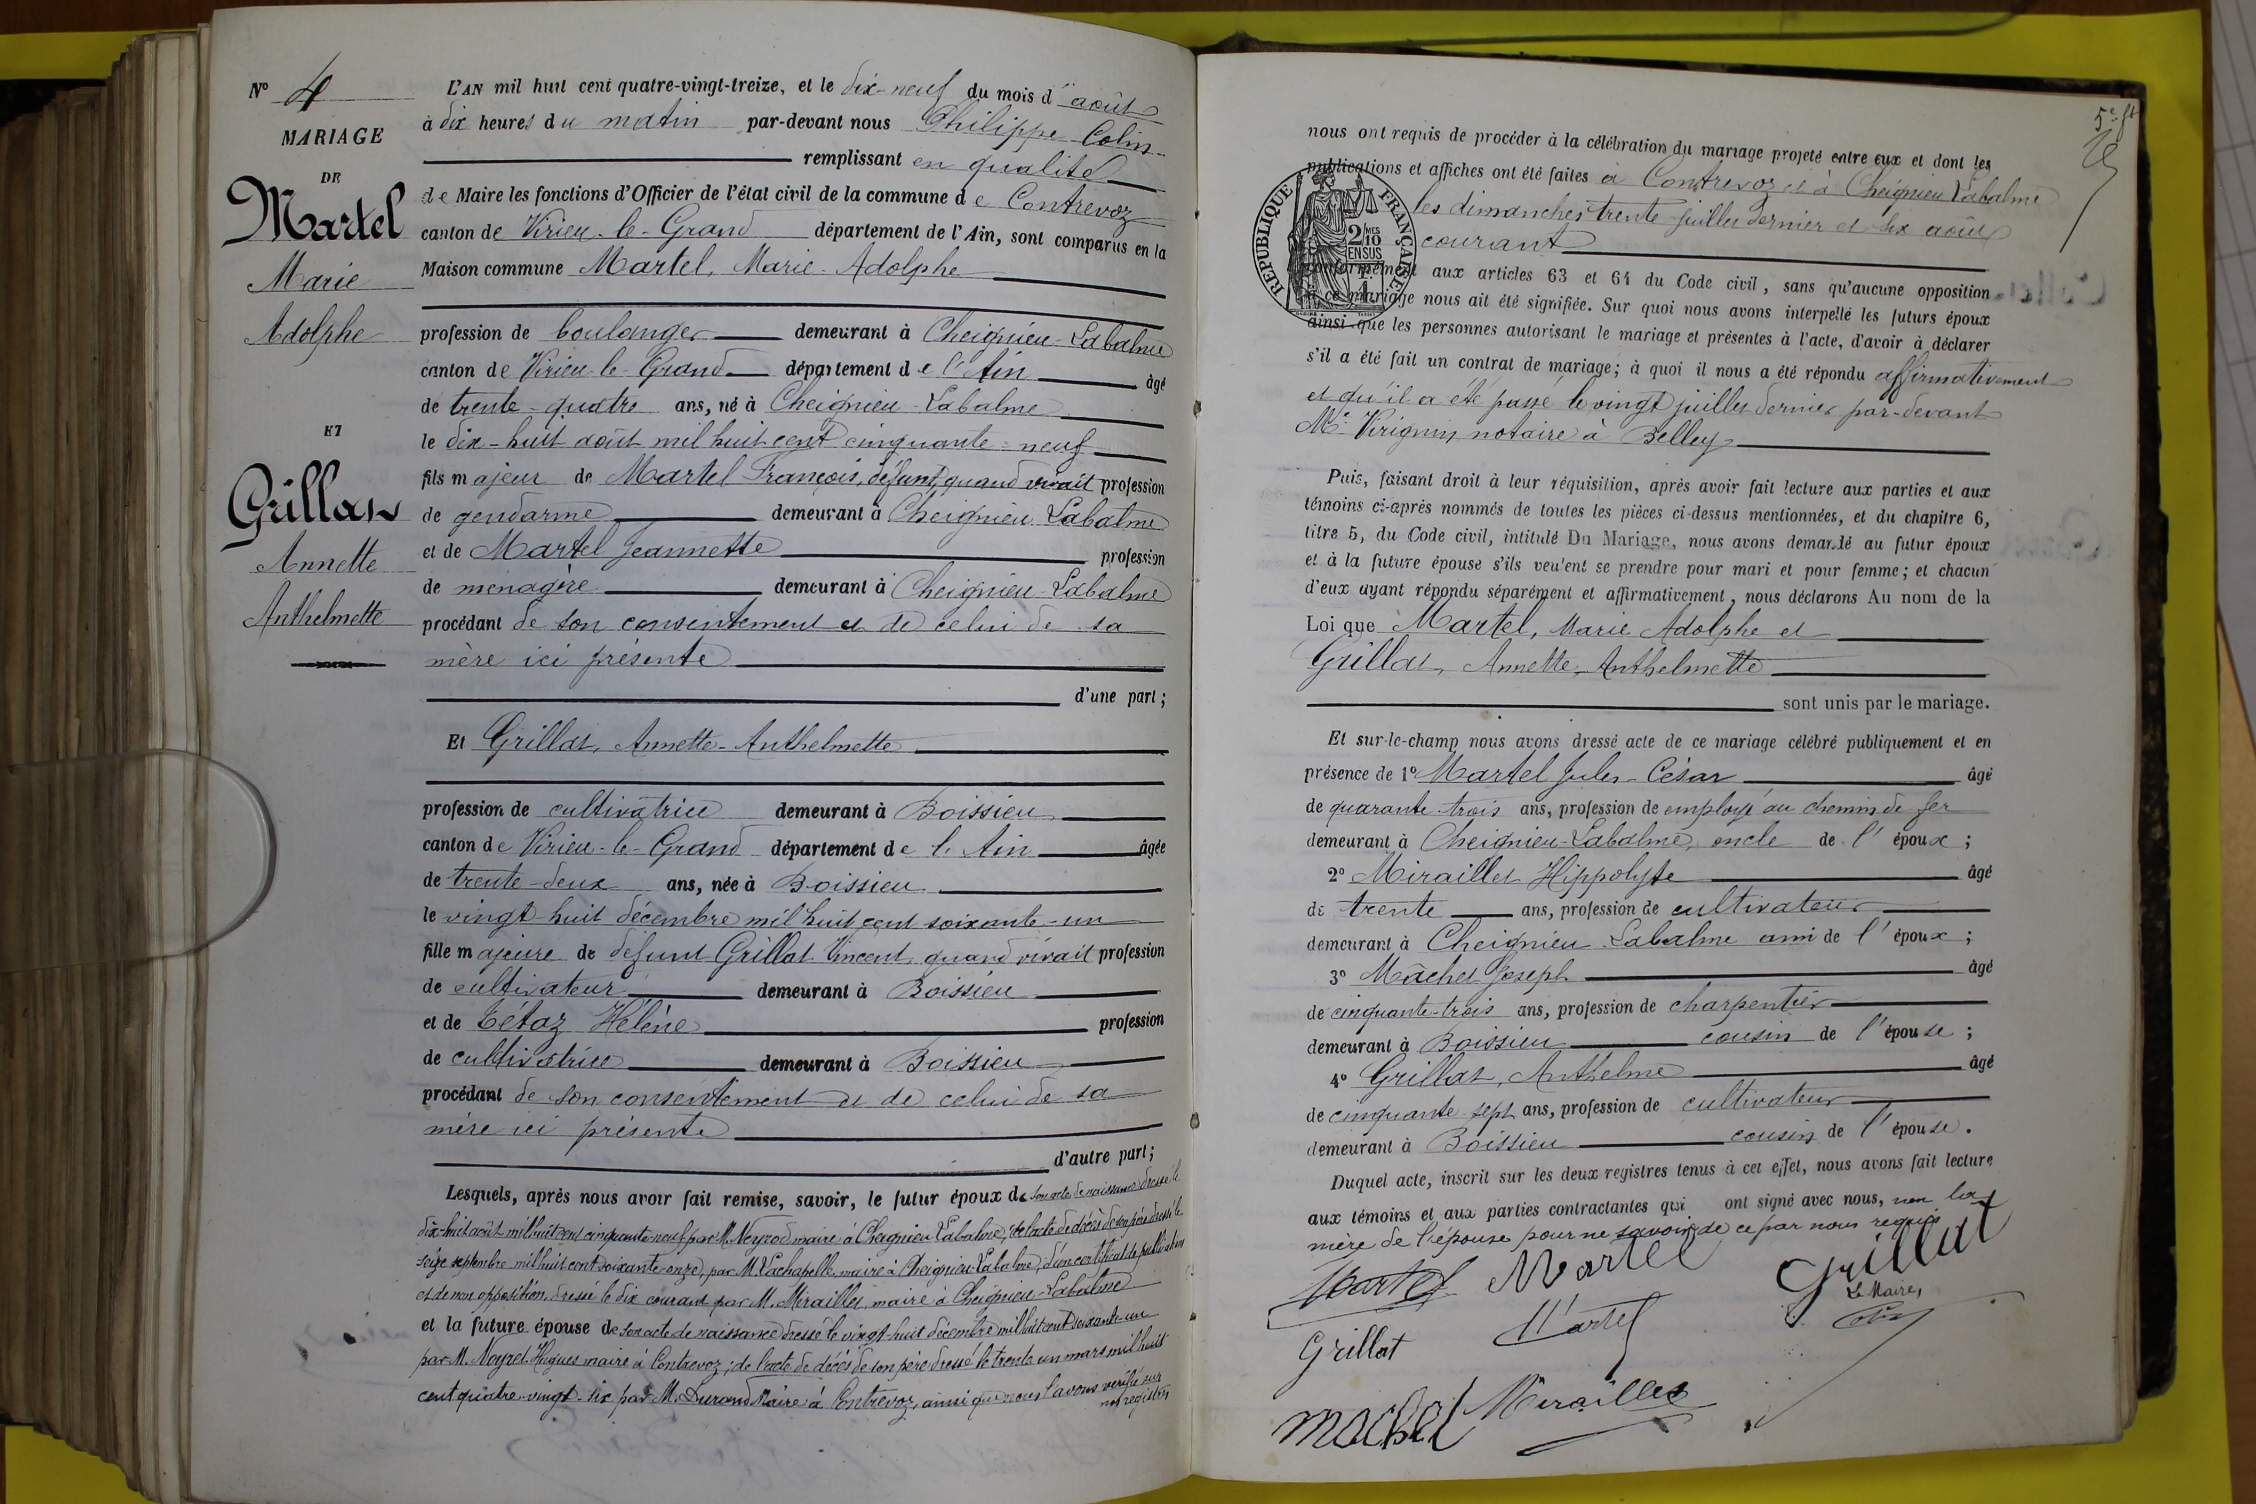 N° 4
MARIAGE
DE
Martel
Marie
Adolphe
ET
Grillat
Annette
Anthelmette
L'AN mil huit cent quatre-vingt-treize, et le dix-neuf du mois d'août
à dix heures du matin par-devant nous Philippe Colin
remplissant en qualité
de Maire les fonctions d'Officier de l'état civil de la commune de Contrevoz
canton de Virieu-le-Grand département de l'Ain, sont comparus en la
Maison commune Martel, Marie-Adolphe
profession de boulanger demeurant à Cheignieu-Labalme
canton de Virieu-le-Grand département de l'Ain âgé
de trente-quatre ans, né à Cheignieu-Labalme
le dix-huit août mil huit cent cinquante-neuf
fils majeur de Martel François, défunt, quand vivait profession
de gendarme demeurant à Cheignieu-Labalme
et de Martel Jeannette profession
de ménagère demeurant à Cheignieu-Labalme
procédant de son consentement et de celui de sa
mère ici présente
d'une part;
Et Grillat, Annette-Anthelmette
profession de cultivatrice demeurant à Boissieu
canton de Virieu-le-Grand département de l'Ain âgée
de trente-deux ans, née à Boissieu
le vingt-huit décembre mil huit cent soixante-un
fille majeure de défunt Grillat Vincent, quand vivait profession
de cultivateur demeurant à Boissieu
et de Tétaz Hélène profession
de cultivatrice demeurant à Boissieu
procédant de son consentement et de celui de sa
mère ici présente
d'autre part;
Lesquels, après nous avoir fait remise, savoir, le futur époux de son acte de naissance dressé le
dix-huit août mil huit cent cinquante-neuf par M. Neyrod maire à Cheignieu-Labalme, de l'acte de décès de son père dressé le
seize septembre mil huit cent soixante-onze, par M. Lachapelle, maire à Cheignieu-Labalme, d'un certificat de publication
et de non opposition, dressé le dix courant par M. Miraillet, maire à Cheignieu-Labalme
et la future épouse de son acte de naissance dressé le vingt-huit décembre mil huit cent soixante-un
par M. Noyret Hugues maire à Contrevoz; de l'acte de décès de son père dressé le trente un mars mil huit
cent quatre-vingt-six par M. Durand Maire à Contrevoz, ainsi que nous l'avons vérifié sur
nos registres
5e ft
nous ont requis de procéder à la célébration du mariage projeté entre eux et dont les
publications et affiches ont été faites à Contrevoz et à Cheignieu Labalme
les dimanches trente juillet dernier et six août
courant
RÉPUBLIQUE FRANÇAISE
2 MES 10 EN SUS
conformément aux articles 63 et 64 du Code civil, sans qu'aucune opposition
à ce mariage nous ait été signifiée. Sur quoi nous avons interpellé les futurs époux
ainsi que les personnes autorisant le mariage et présentes à l'acte, d'avoir à déclarer
s'il a été fait un contrat de mariage; à quoi il nous a été répondu affirmativement
et qu'il a été passé le vingt juillet dernier par-devant
Me Virignin, notaire à Belley
Puis, faisant droit à leur réquisition, après avoir fait lecture aux parties et aux
témoins ci-après nommés de toutes les pièces ci-dessus mentionnées, et du chapitre 6,
titre 5, du Code civil, intitulé Du Mariage, nous avons demandé au futur époux
et à la future épouse s'ils veulent se prendre pour mari et pour femme; et chacun
d'eux ayant répondu séparément et affirmativement, nous déclarons Au nom de la
Loi que Martel, Marie Adolphe et
Grillat, Annette-Anthelmette
sont unis par le mariage.
Et sur-le-champ nous avons dressé acte de ce mariage célébré publiquement et en
présence de 1° Martel Jules-César âgé
de quarante-trois ans, profession de employé au chemin de fer
demeurant à Cheignieu-Labalme, oncle de l'époux;
2° Miraillet Hippolyte âgé
de trente ans, profession de cultivateur
demeurant à Cheignieu-Labalme ami de l'époux;
3° Mâchet Joseph âgé
de cinquante-trois ans, profession de charpentier
demeurant à Boissieu cousin de l'épouse;
4° Grillat, Anthelme âgé
de cinquante sept ans, profession de cultivateur
demeurant à Boissieu cousin de l'épouse.
Duquel acte, inscrit sur les deux registres tenus à cet effet, nous avons fait lecture
aux témoins et aux parties contractantes qui ont signé avec nous, non la
mère de l'épouse pour ne savoir, de ce par nous requis
Martel Martel Grillat
Le Maire,
Colin
Grillat Martel
machet Miraillet